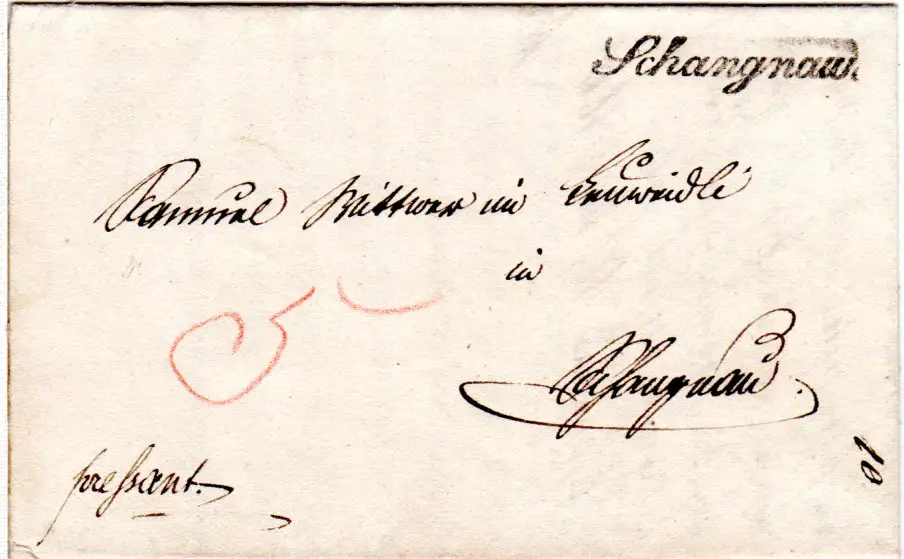 Schangnau.
Samuel Wittwer im Leuweidli
in
Schangnau.
pressant.
10